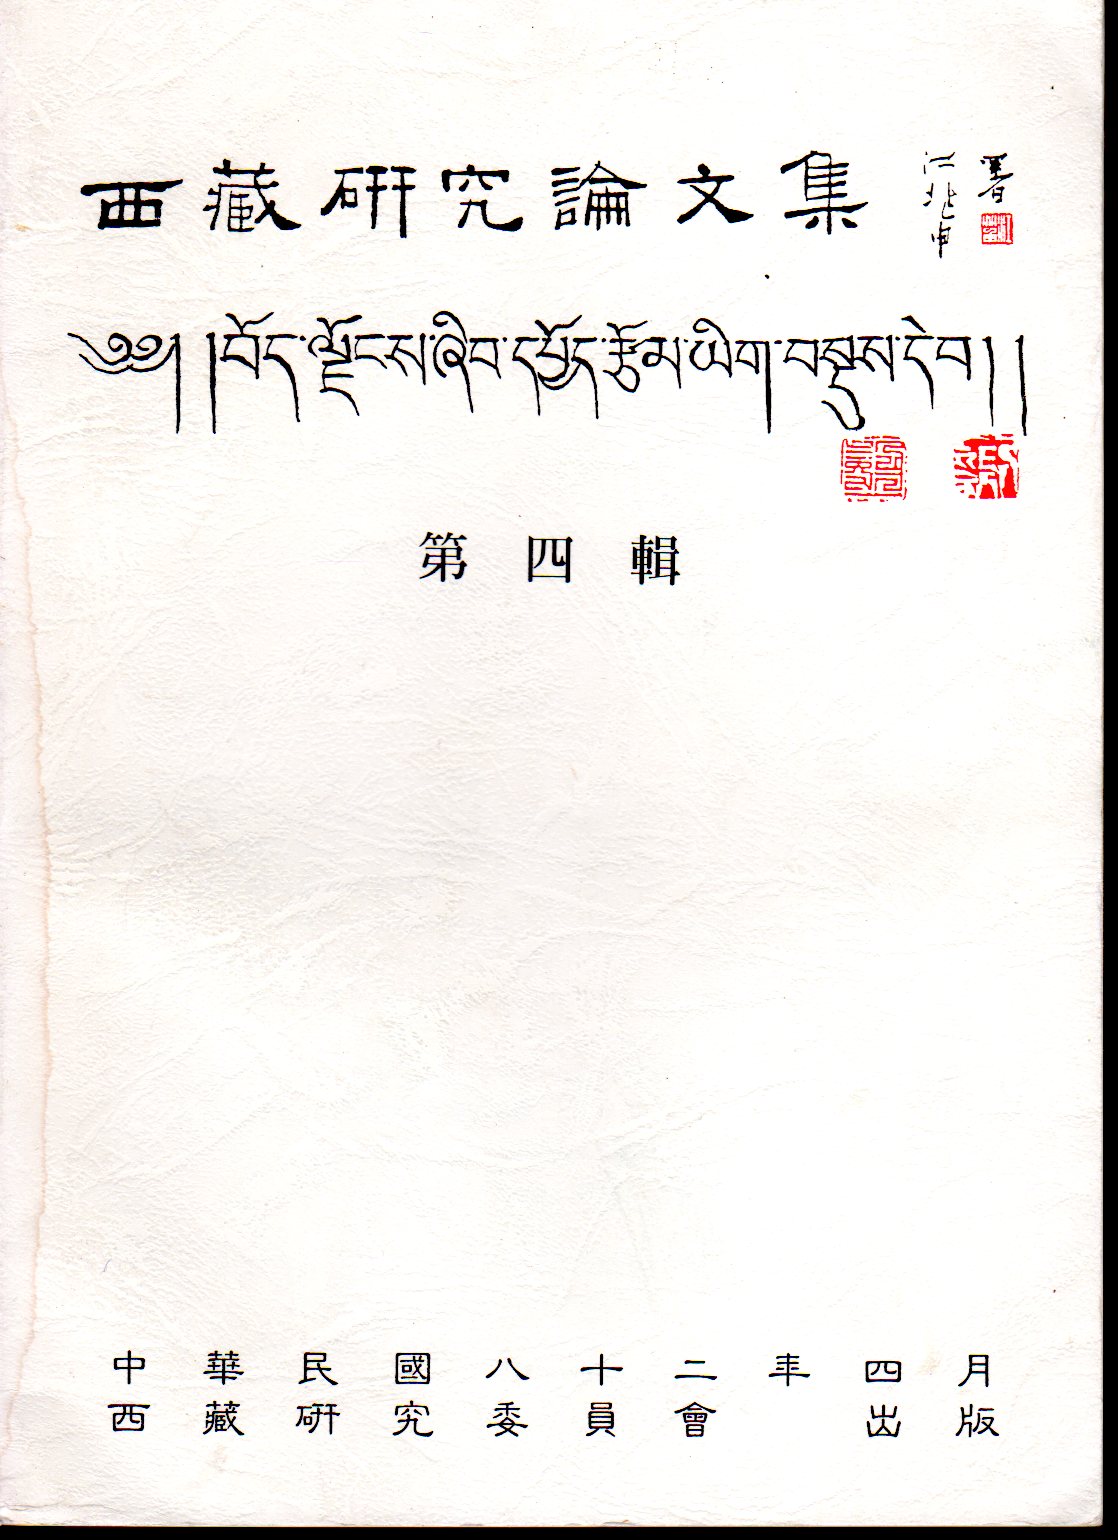 西藏研究論文集
江兆申
署
༄༅། །བོད་ལྗོངས་ཞིབ་དཔྱོད་རྩོམ་ཡིག་བསྡུས་དེབ། །
第四輯
中華民國八十二年四月
西藏研究委員會 出版